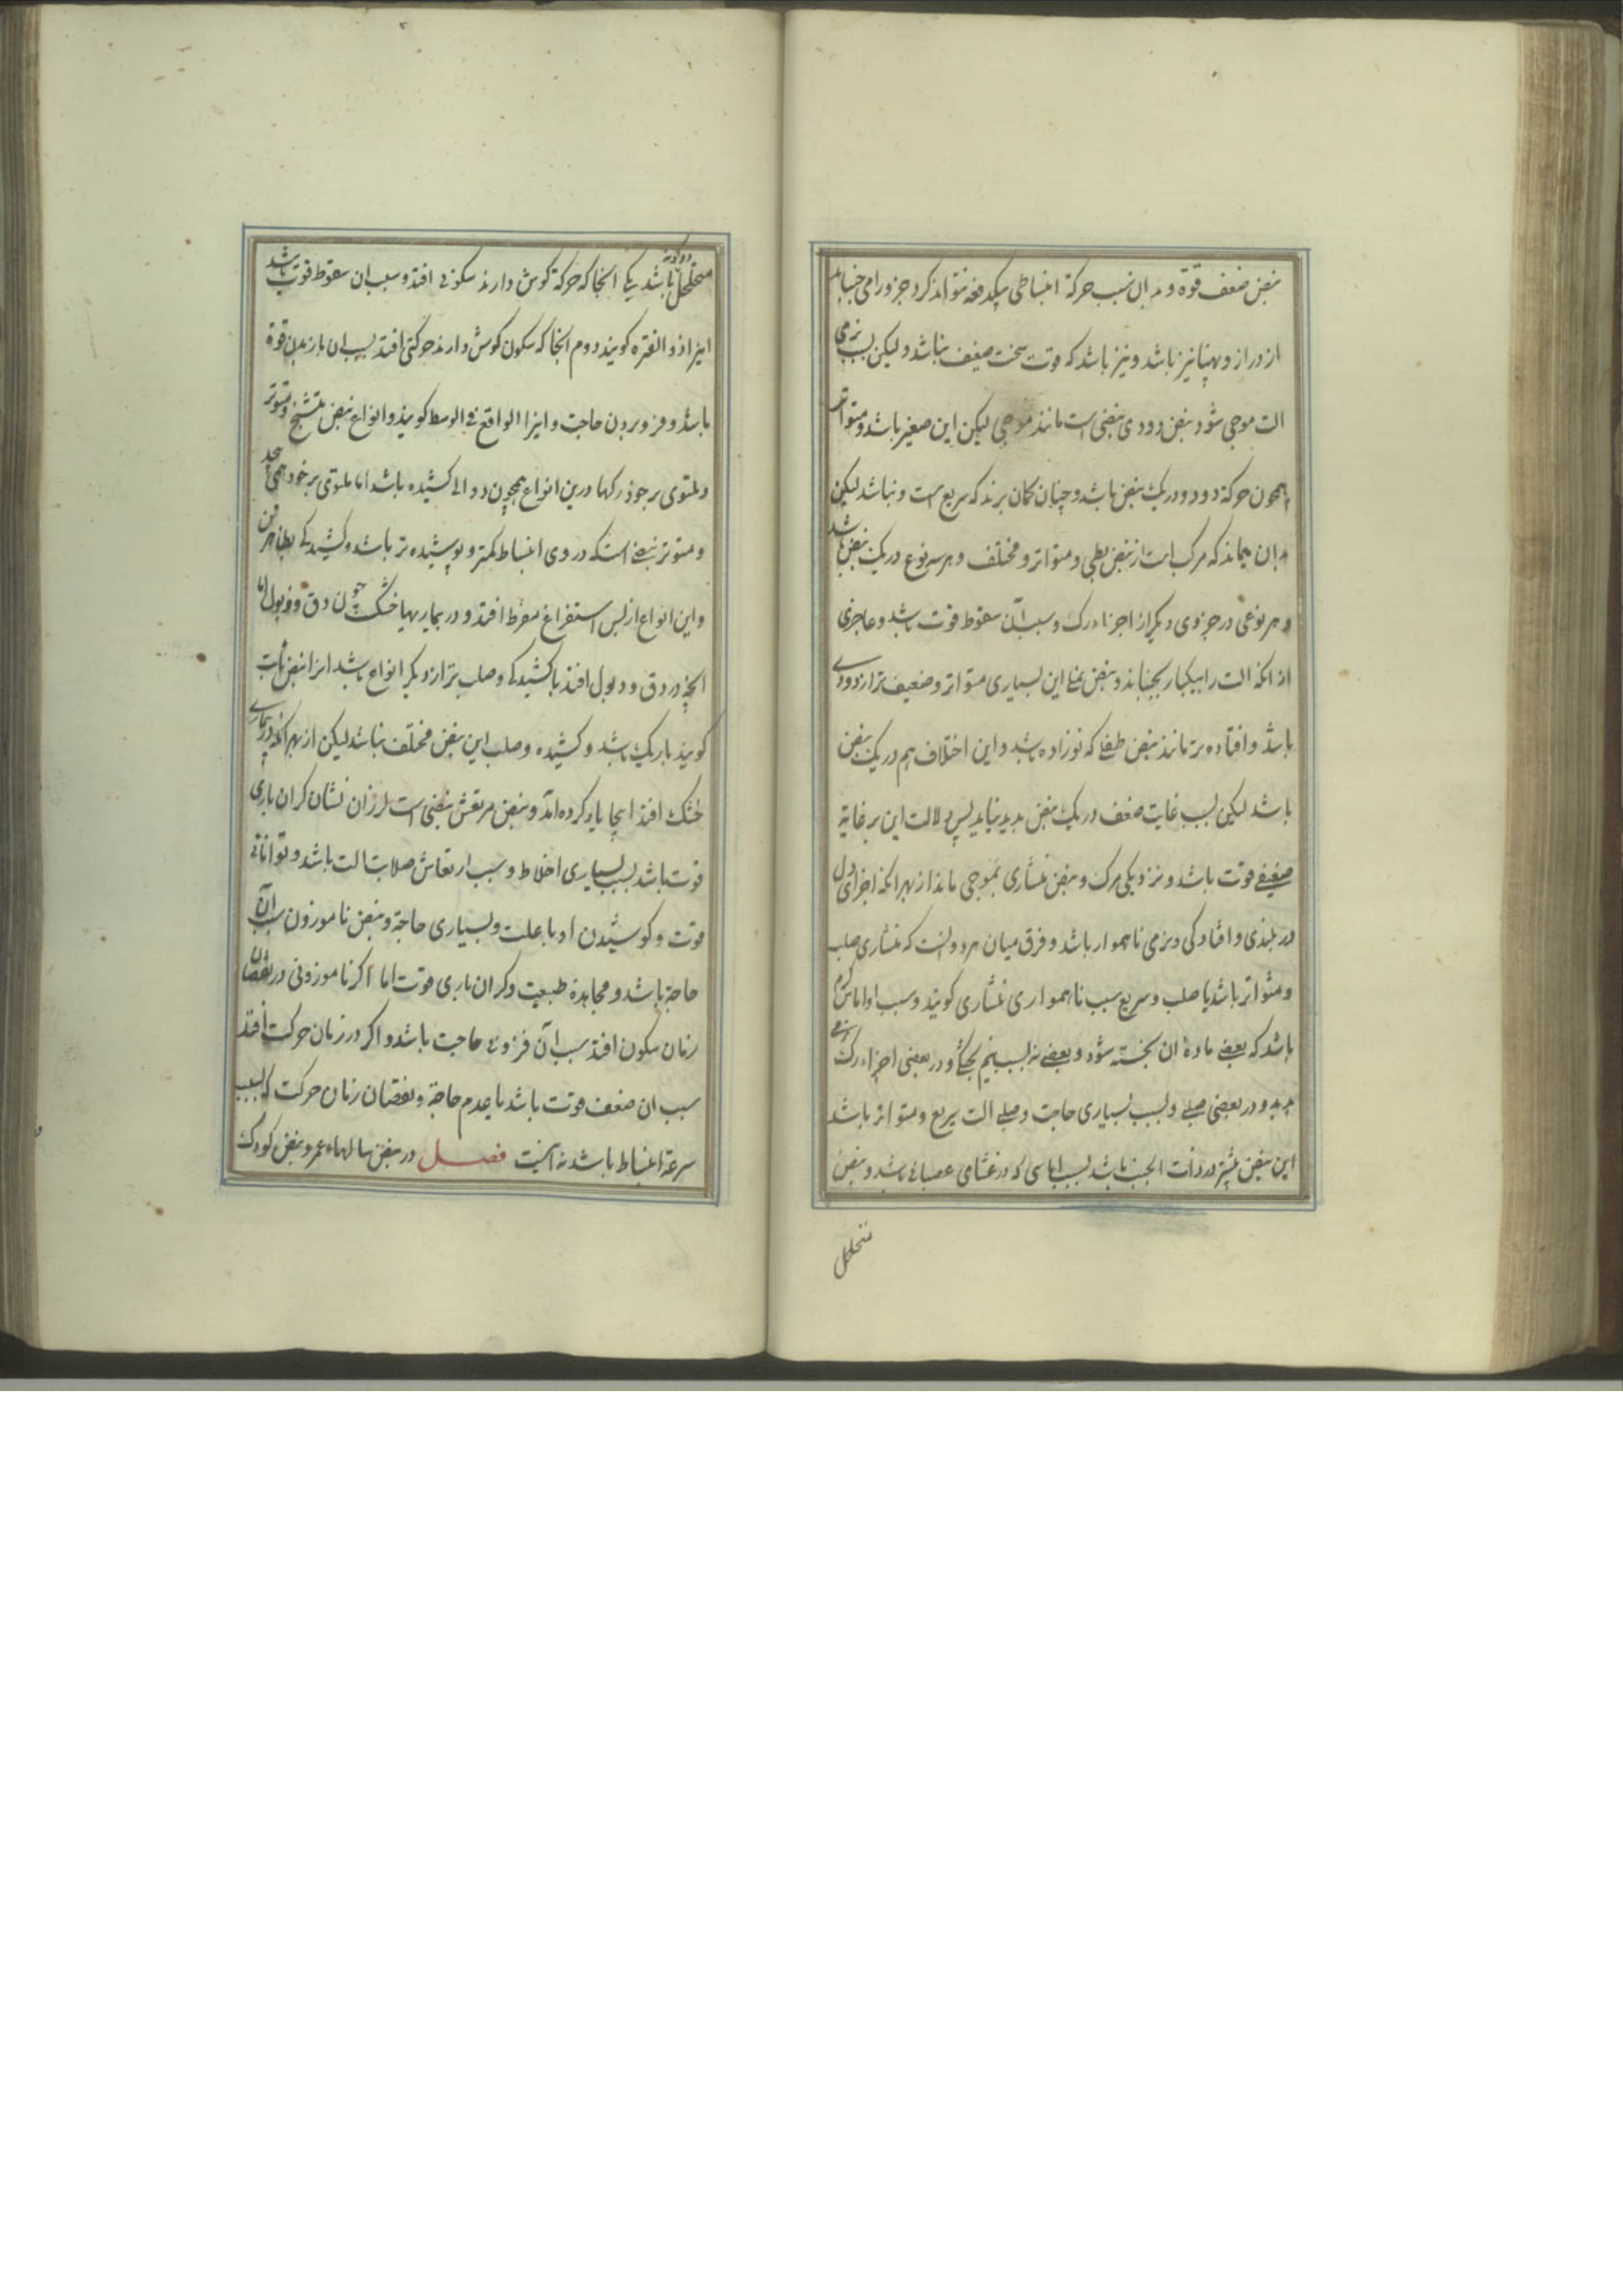 نبض ضعف قوة و بدان سبب حرکة انبساطی بیکدفعه نتواند کرد جزو را می جنباند
از دراز و پهنا نیز باشد و نیز باشد که قوت سخت ضعیف نباشد و لیکن بسبب نرمی
الت موجی شود و نبض دودی نبضی است مانند موجی لیکن این صغیر باشد و متواتر
همچون حرکة دود و در یک نبض باشد و چنان کمان برند که سریع است و نباشد لیکن
بدان میماند که مرکب است از نبض بطی و متواتر و مختلف و هر سه نوع در یک نبض باشد
و هر نوعی در جزوی دیکر از اجزاء رک و سبب آن سقوط قوت باشد و عاجزی
از انکه الت را بیکبار بجنباند و نبض نملی این بسیاری متواتر و ضعیف تر از دودی
باشد و افتاده تر مانند نبض طفلی که نوزاده باشد و این اختلاف هم در یک نبض
باشد لیکن بسبب غایت ضعف در یک نبض بدید نیاید پس دلالت این بر غایة
ضعیفی قوت باشد و نزدیکی مرک و نبض منشاری بموجی ماند از بهر انکه اجزای اول
در بلندی و افتادکی و نرمی ناهموار باشد و فرق میان هر دو انست که منشاری صلب
و متواتر باشد یا صلب و سریع سبب ناهمواری منشاری کویند و سبب او اماس کرم
باشد که بعضی ماده ان بخته شود و بعضی نه بسبب نیم بختکی و در بعضی اجزاء رک نرمی
بدید و در بعضی صلبی و بسبب بسیاری حاجت و صلبی الت سریع و متواتر باشد
این نبض بیشتر در ذات الجنب باشد بسبب اماسی که در غشای عصبانی باشد و نبض
متخلخل
متخلخل دو کونه باشد یکی انجا که حرکة کوش دارند سکونی افتد و سبب ان سقوط قوت باشد
اینرا ذوالفتره کویند دوم انجا که سکون کوش دارند حرکتی افتد بسبب ان باز بدن قوة
باشد و فزوبردن حاجت و اینرا الواقع فی الوسط کویند و انواع نبض متشنج و متوتر
و ملتوی بر خود رکها درین انواع همچون دوالی کشیده باشد اما ملتوی بر خود همی بیجد
و متوتر نبضی است که در وی انبساط کمتر و پوشیده تر باشد و کشیدکی بظاهرتر
و این انواع از پس استفراغ مفرط افتد و در بیماریهای خشک چون دق و ذبول اما
انچه در دق و ذبول افتد با کشیدکی و صلب تر از دیکر انواع باشد انرا نبض ثابت
کویند باریک باشد و کشیده و صلب این نبض مختلف نباشد لیکن از بهر انکه در بیماری
خشک افتد اینجا یاد کرده آمد و نبض مرتعش نبضی است لرزان نشان کران باری
قوت باشد بسبب بسیاری اخلاط و سبب ارتعاش صلابت الت باشد و توانائی
قوت و کوشیدن او با علت و بسیاری حاجة و نبض ناموزون سبب آن
حاجة باشد و مجاهدة طبیعت و کران باری قوت اما اکر ناموزونی در نقصان
زمان سکون افتد سبب آن فزونی حاجت باشد و اکر در زمان حرکت افتد
سبب ان ضعف قوت باشد یا عدم حاجة و نقصان زمان حرکت که بسبب
سرعة انبساط باشد نه اینست فصل در نبض سالهاء عمر و نبض کودک